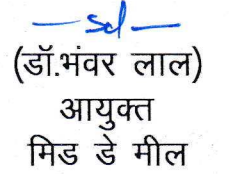 —sd—
(डॉ.भंवर लाल)
आयुक्त
मिड डे मील